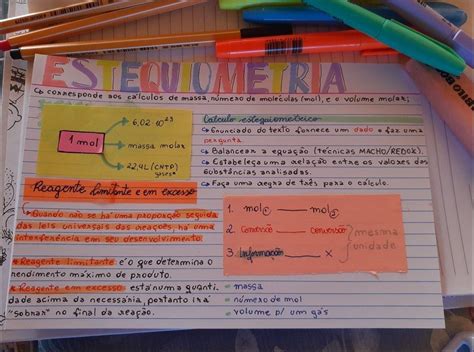 ESTEQUIOMETRIA
↳ corresponde aos cálculos de massa, número de moléculas (mol), e o volume molar;
1 mol
6,02 · 10²³
massa molar
22,4L (CNTP)
gases*
Cálculo estequiométrico
↳ Enunciado do texto fornece um dado e faz uma
pergunta.
↳ Balancear a equação (técnicas MACHO/REDOX).
↳ Estabeleça uma relação entre os valores das
substâncias analisadas.
↳ Faça uma regra de três para o cálculo.
Reagente limitante e em excesso
↳ Quando não se há uma proporção seguida
das leis universais das reações há uma
interferência em seu desenvolvimento.
* Reagente limitante: é o que determina o
rendimento máximo de produto.
* Reagente em excesso: está numa quanti
dade acima da necessária, portanto irá
"sobrar" no final da reação.
1. mol ——— mol
2. Conversão ——— conversão
3. Informação ——— x
} mesma
unidade
- massa
- número de mol
- volume p/ um gás